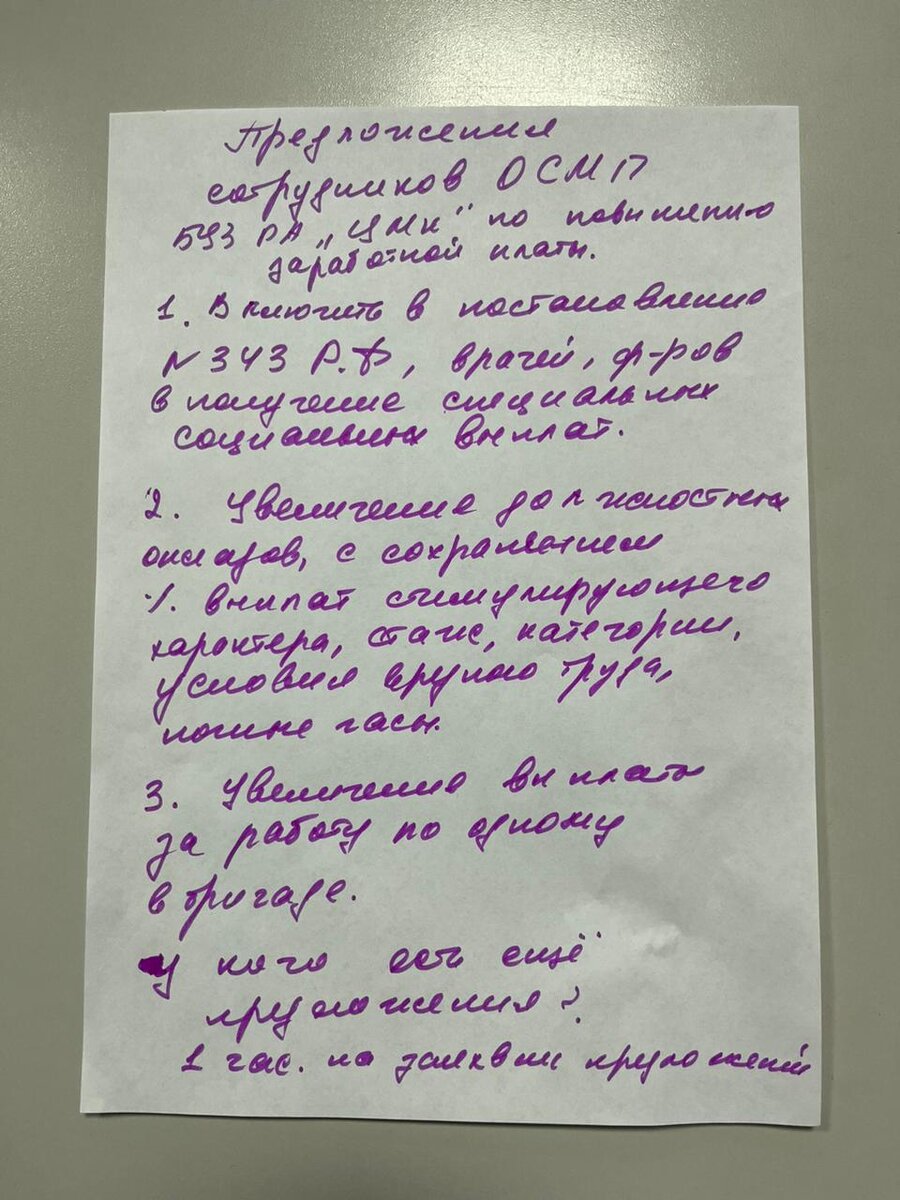 Предложения
сотрудников ОСМП
БУЗ РА "ЦМК" по повышению
заработной платы.
1. Включить в постановление
N 343 Р.Ф, врачей, ф-ров
в получение специальных
социальных выплат.
2. Увеличение должностных
окладов, с сохранением
% выплат стимулирующего
характера, стаж, категории,
условия труда,
ночные часы.
3. Увеличение выплаты
за работу по одному
в бригаде.
У кого есть ещё
предложения?
1 час. на предложений